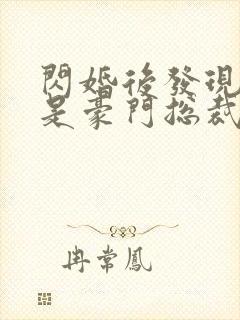 閃婚後發現
是豪門總裁
冉常鳳